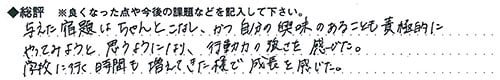 ◆総評 ※良くなった点や今後の課題などを記入して下さい。
与えた宿題はちゃんとこなし、かつ自分の興味のあることも積極的に
やってみようと思うようになり、行動力の強さを感じた。
学校に行く時間も増えてきた様で成長を感じた。